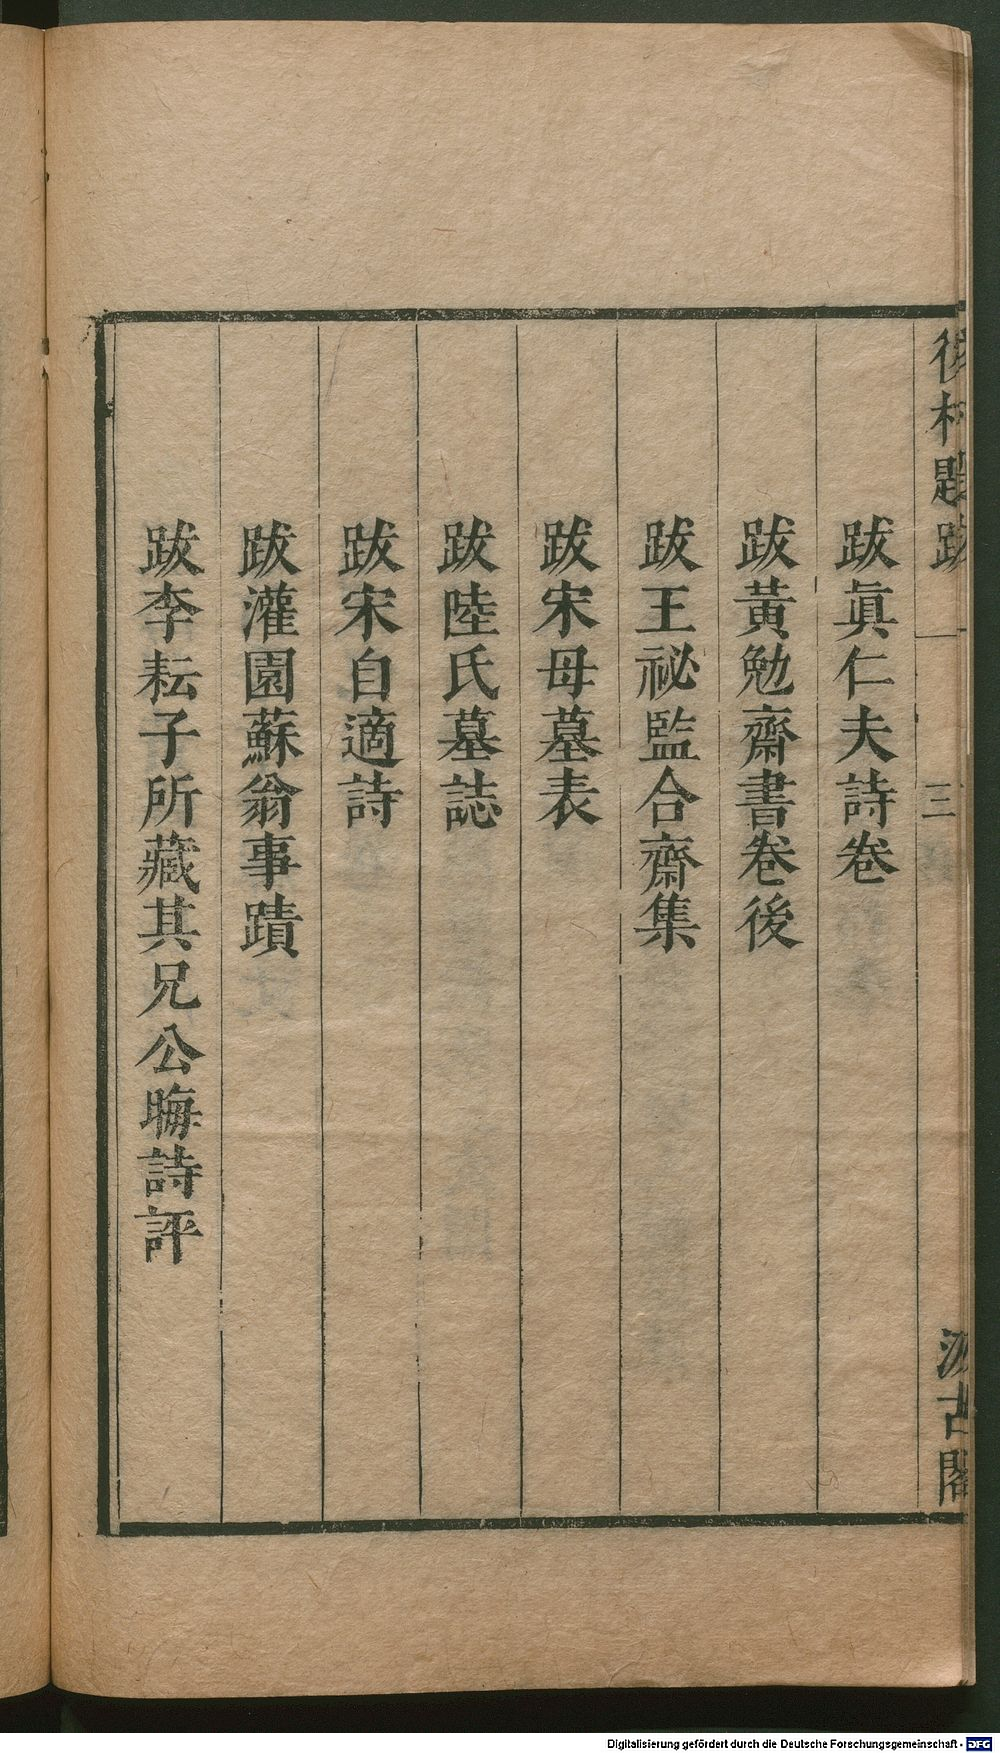 後村題跋 一 三 汲古閣
跋眞仁夫詩卷
跋黃勉齋書卷後
跋王祕監合齋集
跋宋母墓表
跋陸氏墓誌
跋宋自適詩
跋灌園蘇翁事蹟
跋李耘子所藏其兄公晦詩評
Digitalisierung gefördert durch die Deutsche Forschungsgemeinschaft - DFG